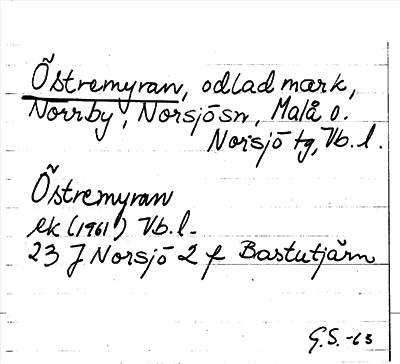 Östremyran, odlad mark,
Norrby, Norsjösn, Malå o.
Norsjö tg, Vb. l.
Östremyran
ek (1961) Vb. l.
23 J Norsjö 2 f Bastutjärn
G.S. -63